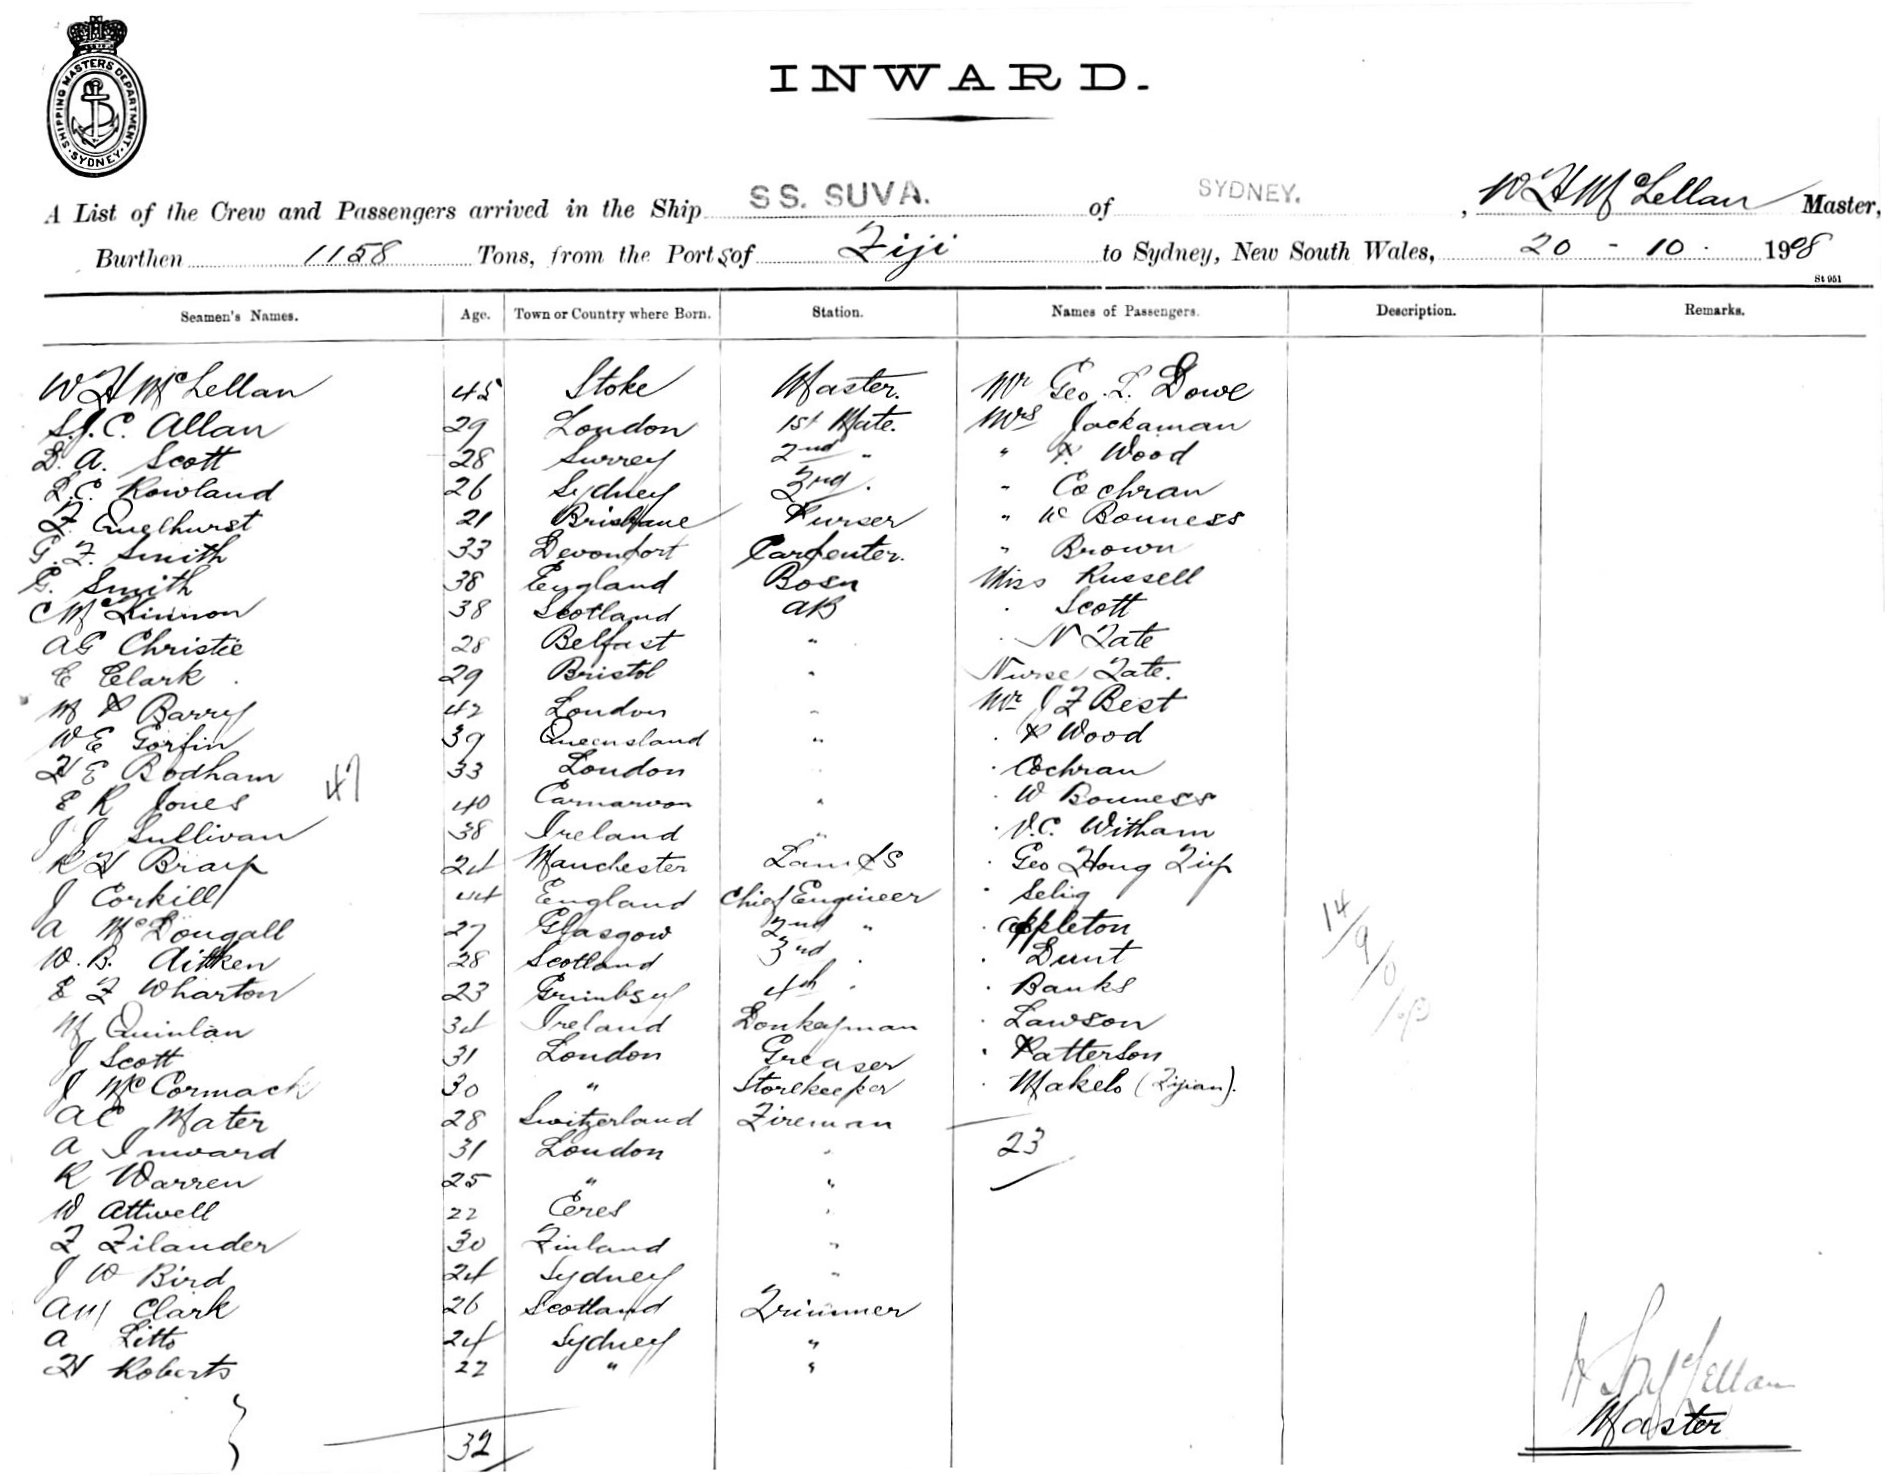 SHIPPING MASTERS DEPARTMENT. SYDNEY
INWARD.
A List of the Crew and Passengers arrived in the Ship SS. SUVA. of SYDNEY. , W H McLellan Master,
Burthen 1158 Tons, from the Port s of Fiji to Sydney, New South Wales, 20 - 10 . 1908
St 951
Seamen's Names. Age. Town or Country where Born. Station. Names of Passengers. Description. Remarks.
W H McLellan 45 Stoke Master. Mr Geo. L. Dowe
S.J.C. Allan 29 London 1st Mate. Mrs Jackaman
D. A. Scott 28 Surrey 2nd " " P. Wood
L.C. Rowland 26 Sydney 3rd . " Cochran
F. Quelhurst 21 Brisbane Purser " W Bonness
G. F. Smith 33 Devonport Carpenter. " Brown
G. Smith 38 England Bosn Miss Russell
C McKinnon 38 Scotland AB . Scott
AG Christie 28 Belfast " . N Tate
E Clark 29 Bristol " Nurse Tate.
M P Barry 42 London " Mr J F Best
W E Gorfin 39 Queensland " . P Wood
H E Bodham 33 London . Cochran
E R Jones 40 Carnarvon " . W Bonness
47
J J Sullivan 38 Ireland " . V.C. Witham
R H 24 Manchester . Geo Hong
J Corkill 44 England Chief Engineer . Selig
A McDougall 27 Glasgow 2nd " . Appleton
W. B. Aitken 28 Scotland 3rd . . Dunt
E F Wharton 23 Grimbsy 4th . . Banks
M Quinlan 34 Ireland Donkeyman . Lawson
J Scott 31 London Greaser . Patterson
J McCormack 30 " Storekeeper . Makelo (Fijian).
AC Mater 28 Switzerland Fireman
A Inward 31 London " 23
R Warren 25 " "
W Attwell 22 "
F Filander 30 Finland "
J W Bird 24 Sydney "
Clark 26 Scotland Trimmer
A Litto 24 Sydney "
H Roberts 22 " "
14/9/0
McLellan
Master
32